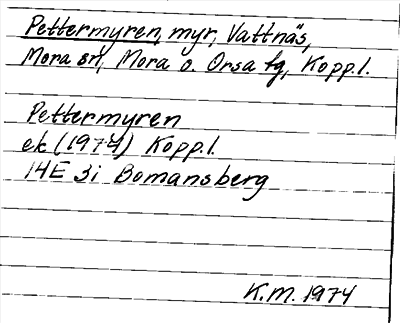 Pettermyren, myr, Vattnäs,
Mora sn, Mora o. Orsa tg, Kopp.l.
Pettermyren
ek (1974) Kopp.l.
14E 3i Bomansberg
K.M. 1974